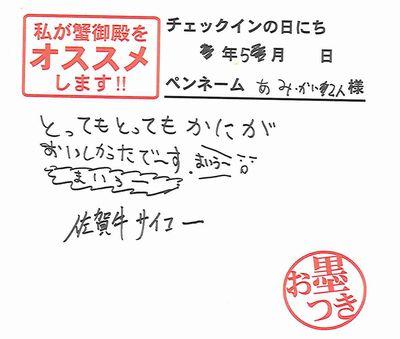 私が蟹御殿を
オススメ
します!!
チェックインの日にち
年5月 日
ペンネーム あみ・かい 様
とってもとってもかにが
おいしかったで〜す
まいうー
まいうー
佐賀牛サイコー
お墨つき